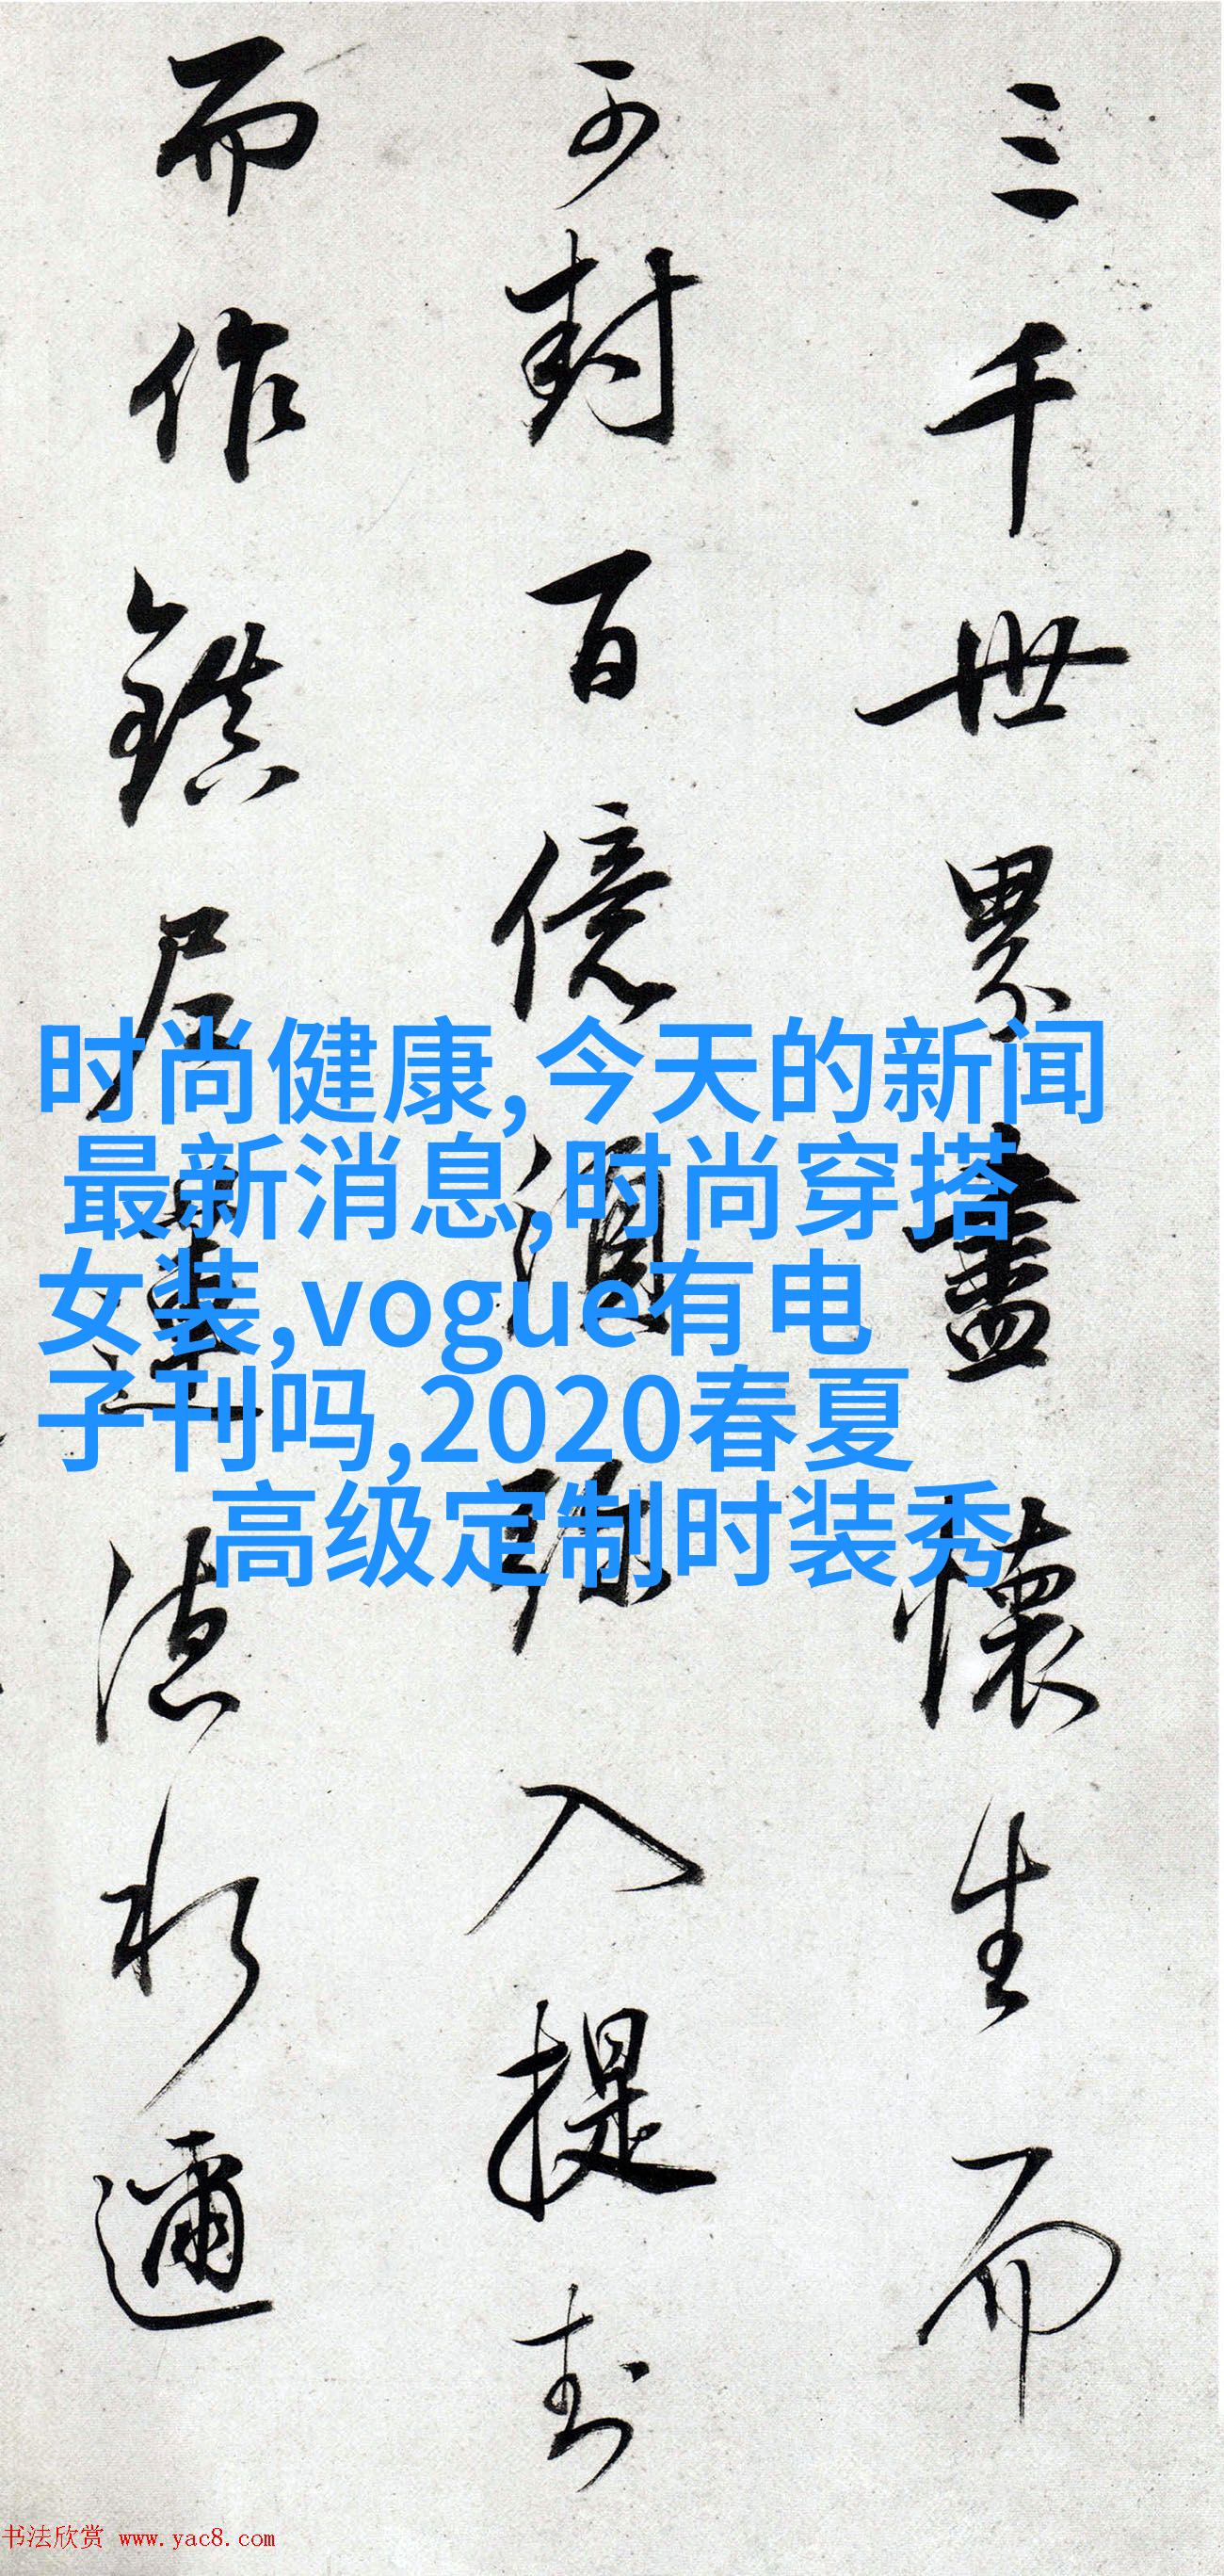 三千世累盡懷生而
可封百億須弥入提封
而作鎮居
德彩邇
时尚健康,今天的新闻
最新消息,时尚穿搭
女装,vogue有电
子刊吗,2020春夏
高级定制时装秀
书法欣赏 www.yac8.com